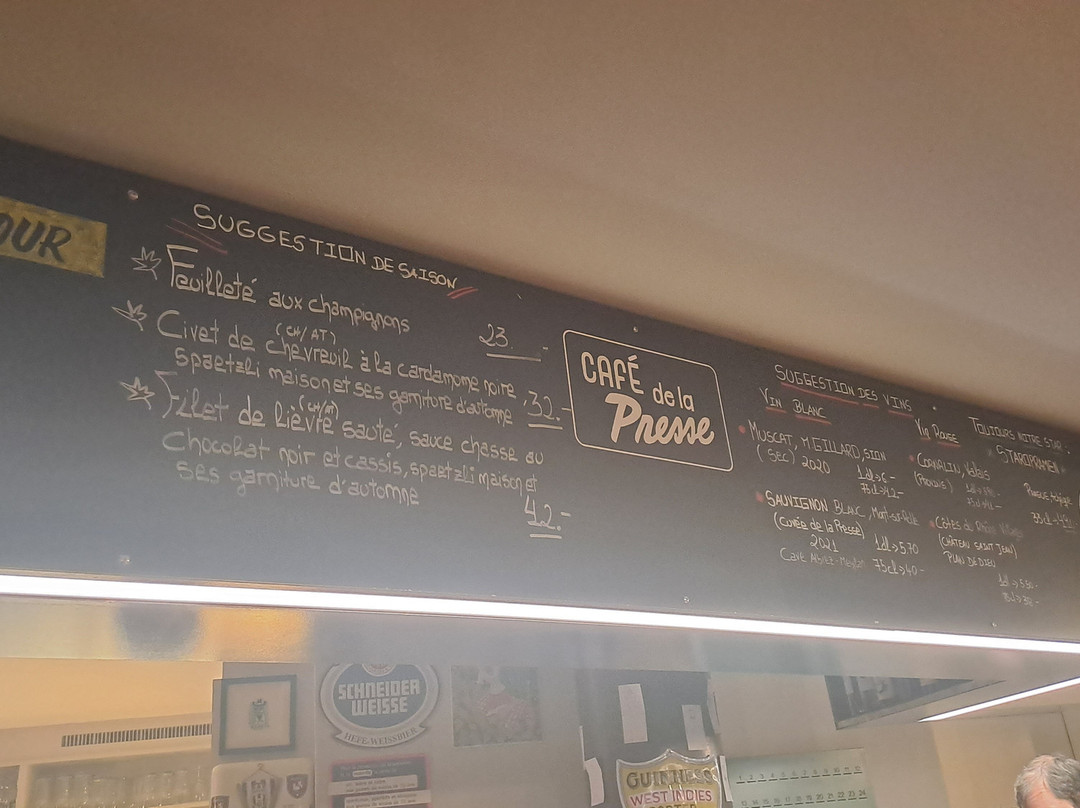 OUR
SUGGESTION DE SAISON
Feuilleté aux champignons
23.-
(CH/AT)
Civet de chevreuil à la cardamome noire,
spaetzli maison et ses garniture d'automne 32.-
(CH/AT)
Filet de lièvre sauté, sauce chasse au
chocolat noir et cassis, spaetzli maison et
ses garniture d'automne
42.-
CAFÉ de la
Presse
SUGGESTION DES VINS
VIN BLANC
MUSCAT, M. GILLARD, SION
(SEC) 2020
1dl→6.-
75cl→42.-
SAUVIGNON BLANC,
(Cuvée de la Presse)
2021 1dl→5.70
Cave 75cl→40.-
VIN ROUGE
CORNALIN, Valais
CÔTES du Rhône
(CHÂTEAU SAINT JEAN)
PLAN DE DIEU
TOUJOURS NOTRE STAR
STAROPRAMEN
33cl
SCHNEIDER
WEISSE
HEFE-WEISSBIER
GUINNESS
WEST INDIES
PORTER